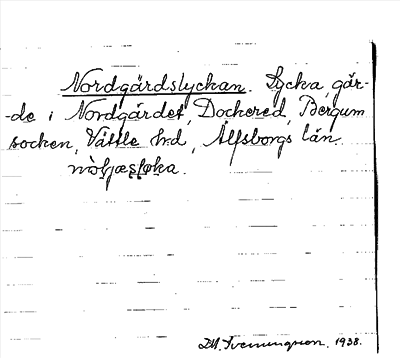 Nordgärdslyckan. Lycka, gär-
-de i Nordgärdet, Dochered, Bergum
socken, Vättle hd, Älfsborgs län.
D.W. Svenningson. 1938.